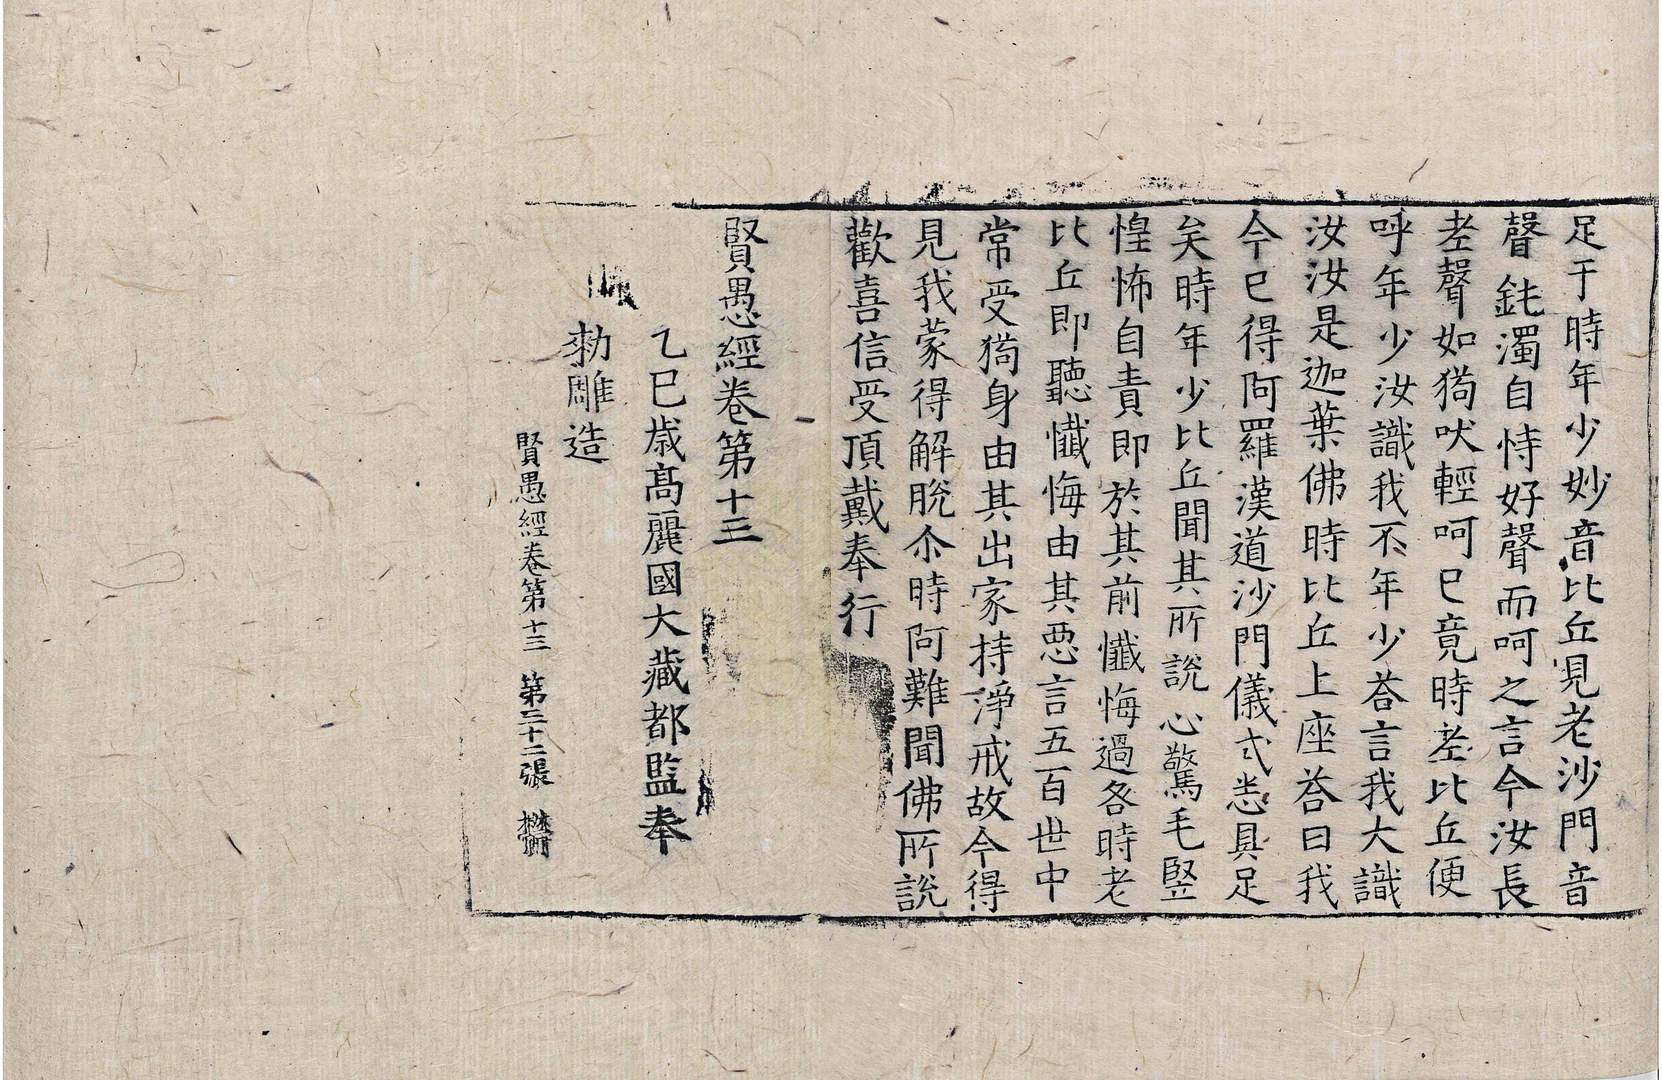 足于時年少妙音比丘見老沙門音
聲鈍濁自恃好聲而呵之言今汝長
老聲如㺃吠輕呵已竟時老比丘便
呼年少汝識我不年少荅言我大識
汝汝是迦葉佛時比丘上座荅曰我
今已得阿羅漢道沙門儀式悉具足
矣時年少比丘聞其所說心驚毛竪
惶怖自責即於其前懺悔過咎時老
比丘即聽懺悔由其惡言五百世中
常受㺃身由其出家持淨戒故今得
見我蒙得解脫尒時阿難聞佛所說
歡喜信受頂戴奉行
賢愚經卷第十三
乙巳歲高麗國大藏都監奉
勑雕造
賢愚經卷第十三 第三十二張